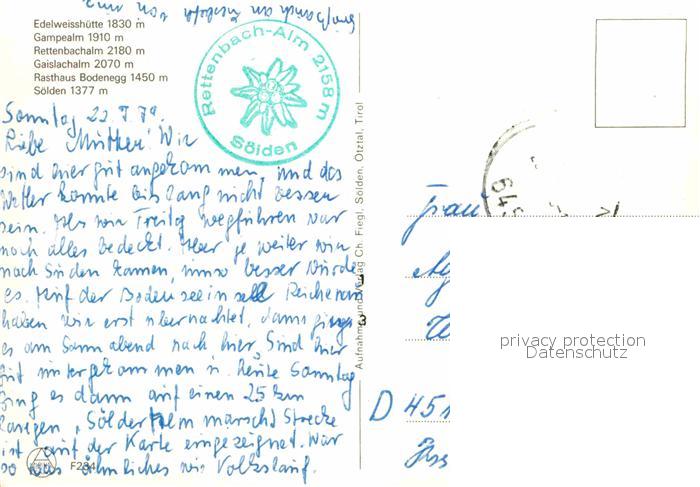 Edelweisshütte 1830 m
Gampealm 1910 m
Rettenbachalm 2180 m
Gaislachalm 2070 m
Rasthaus Bodenegg 1450 m
Sölden 1377 m
Rettenbach-Alm 2158 m
Sölden
Sonntag
Liebe Mutter! Wir
sind hier gut angekommen, und das
Wetter könnte bislang nicht besser
sein. Als wir Freitag wegfuhren war
noch alles bedeckt. Aber je weiter wir
nach Süden kamen, umso besser wurde
es. Auf der Bodenseeinsel Reichenau
haben wir erst übernachtet, dann ging
es am Sonnabend nach hier. Sind hier
gut untergekommen. Heute Sonntag
ging es dann auf einen 25 km
langen „Sölder Almmarsch“ Strecke
ist auf der Karte eingezeichnet. War
so was ähnliches wie Volkslauf.
F284
Aufnahme und Verlag Ch. Fiegl, Sölden, Ötztal, Tirol
Frau
D 451
privacy protection
Datenschutz